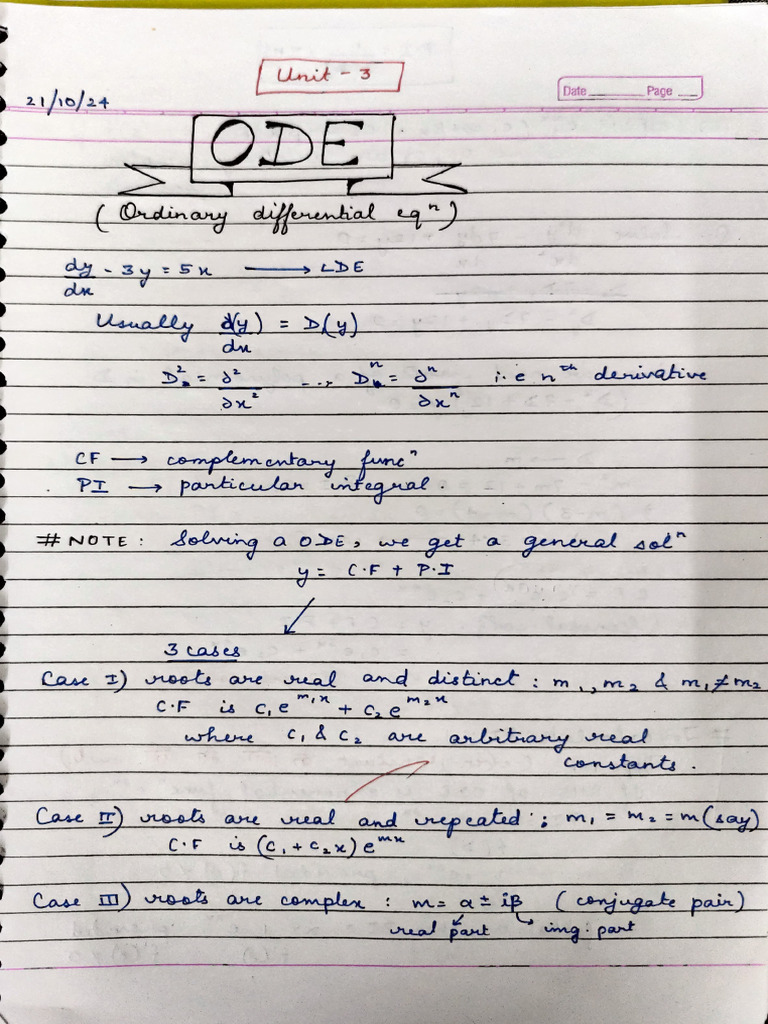 Unit - 3
21/10/24
Date Page
ODE
(Ordinary differential eqⁿ)
dy/dx - 3y = 5x → LDE
Usually d(y)/dx = D(y)
D² = ∂²/∂x² ..., Dⁿ = ∂ⁿ/∂xⁿ i.e nᵗʰ derivative
CF → complementary funcⁿ
PI → particular integral.
# NOTE: Solving a ODE, we get a general solⁿ
y = C.F + P.I
3 cases
Case I) roots are real and distinct : m₁, m₂ & m₁ ≠ m₂
C.F is c₁e^m₁x + c₂e^m₂x
where c₁ & c₂ are arbitrary real
constants.
Case II) roots are real and repeated : m₁ = m₂ = m (say)
C.F is (c₁ + c₂x) e^mx
Case III) roots are complex : m = α ± iβ (conjugate pair)
real part img. part